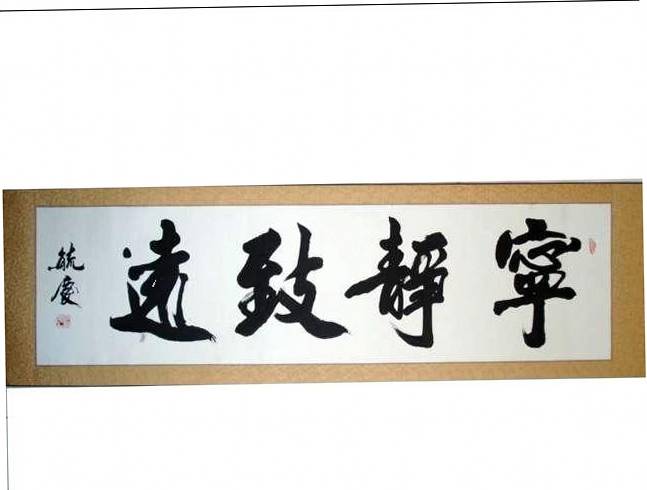 寧靜致遠
毓慶